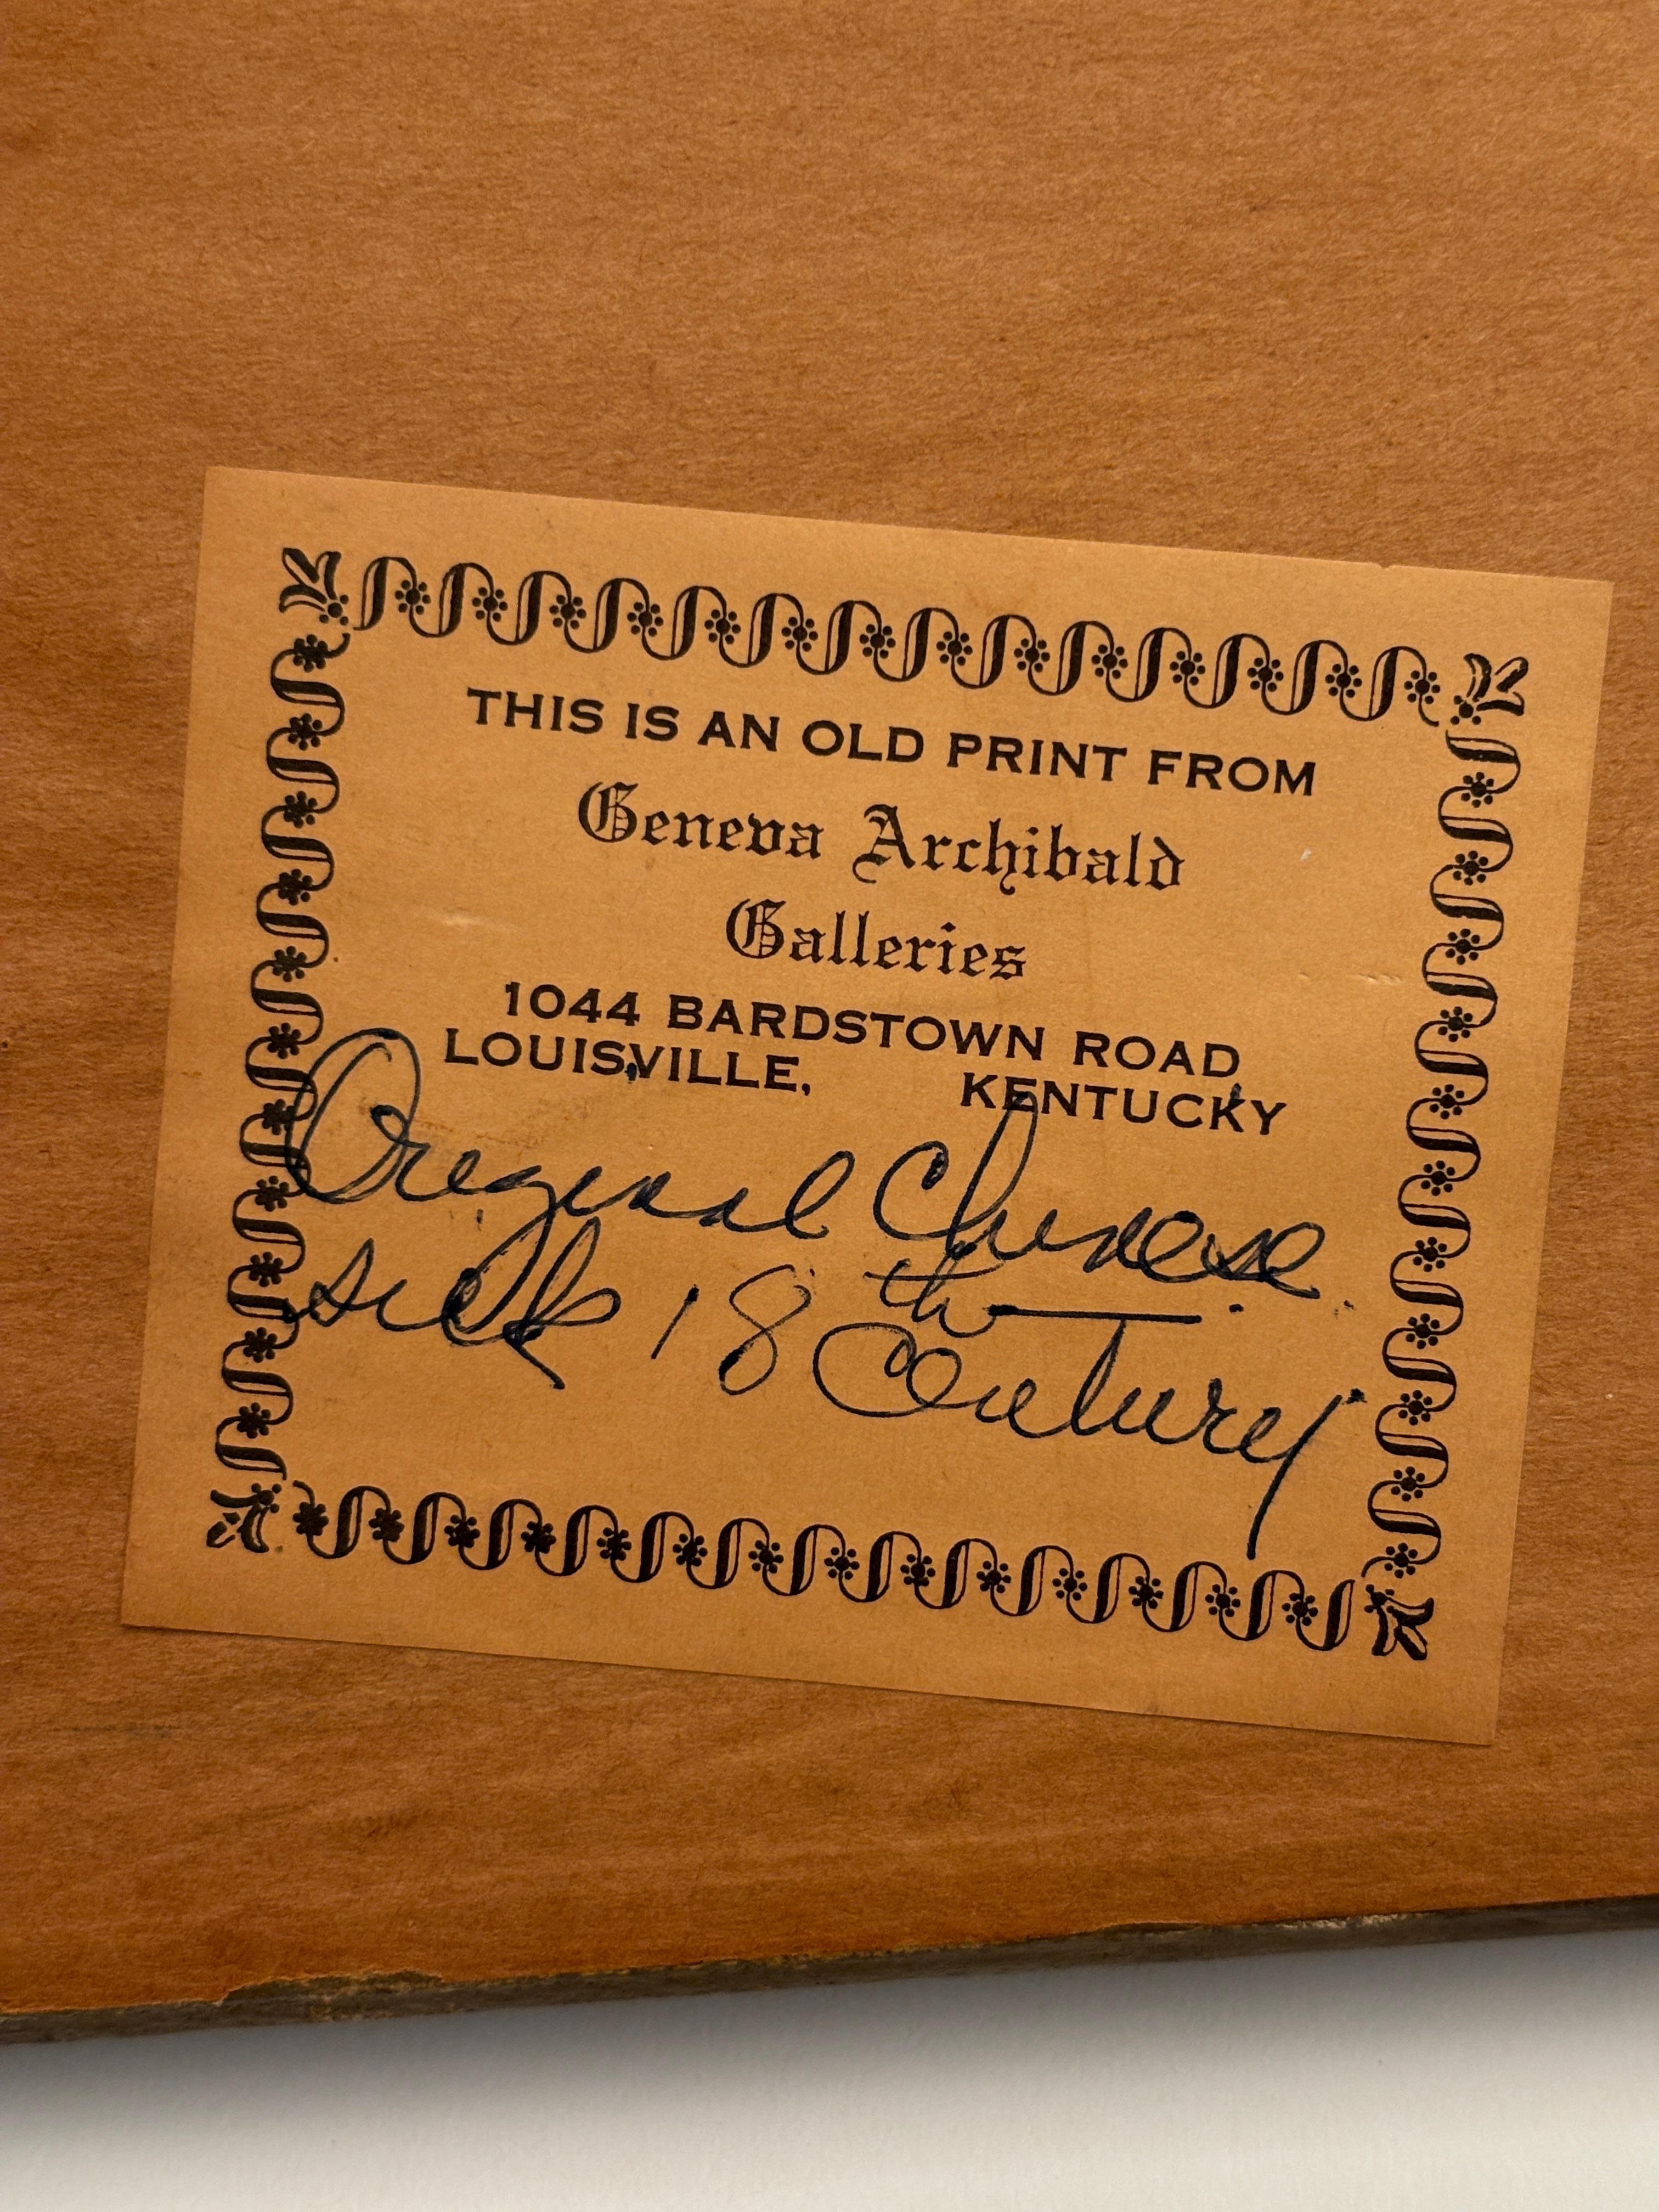 THIS IS AN OLD PRINT FROM
Geneva Archibald
Galleries
1044 BARDSTOWN ROAD
LOUISVILLE, KENTUCKY
Original Chinese
silk 18th
Century